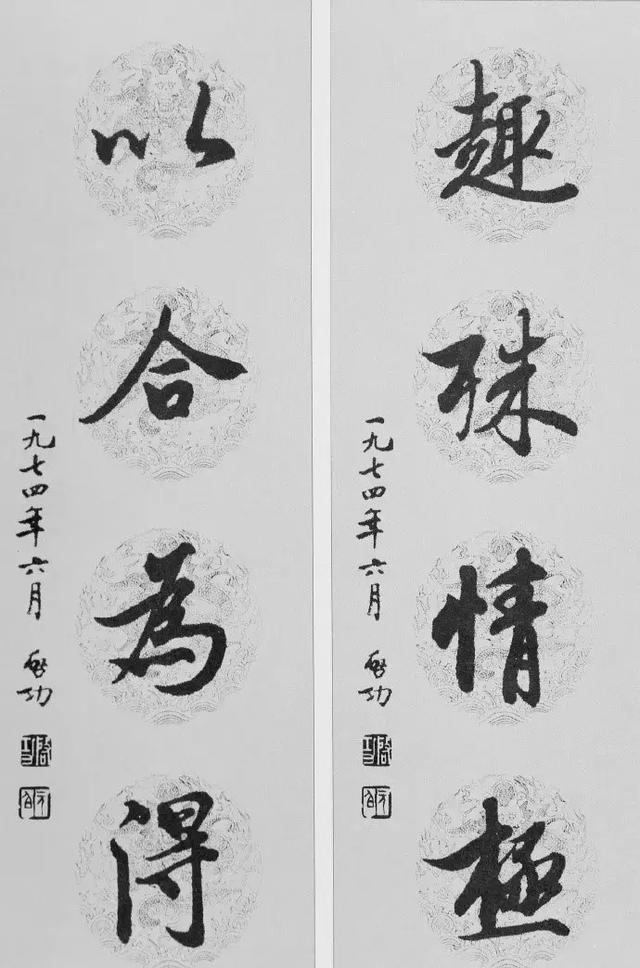 趣殊情極
一九七四年六月 启功
以合為得
一九七四年六月 启功